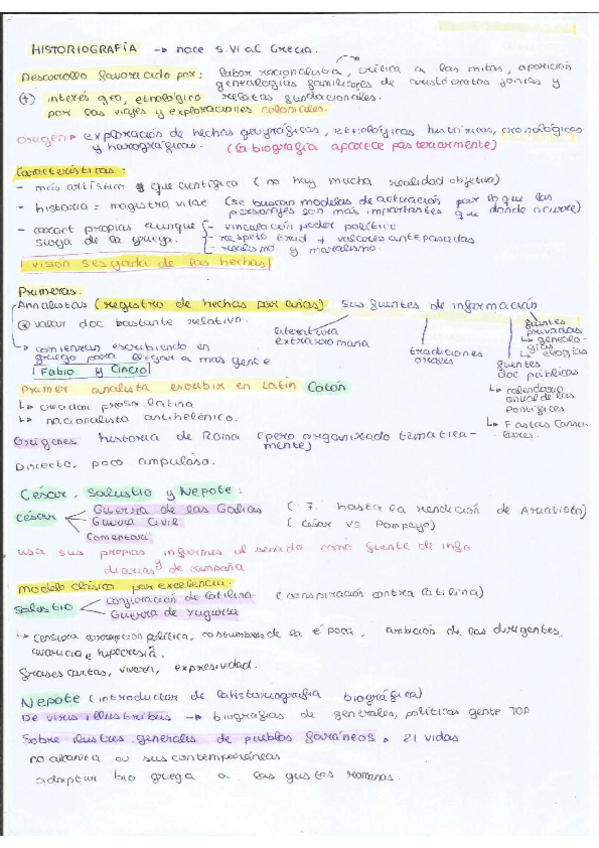 HISTORIOGRAFÍA → nace s.VI aC Grecia.
Desarrollo favorecido por: labor racionalista, crítica a los mitos, aparición
genealogías familiares de aristócratas jonios y
relatos fundacionales.
(+) interés geo, etnológico
por los viajes y exploraciones coloniales.
Origen → exploración de hechos geográficos, etnológicos, históricos, cronológicos
y horográficos. (la biografía aparece posteriormente)
Características:
- más artístico que científico (no hay mucha realidad objetiva)
- historia = magistra vitae (se buscan modelos de actuación por lo que los
personajes son más importantes que donde ocurre)
- caract propias aunque
surja de la griega.
- vinculación poder político
- respeto trad + valores antepasados
- realismo y moralismo
visión sesgada de los hechos
Primeros.
Annalistas (registro de hechos por años) sus fuentes de información
valor doc bastante relativo.
literatura
extrarromana
tradiciones
orales
fuentes
privadas
↳ genealo-
gías
↳ elogios
fuentes
doc públicos
↳ calendario
anual de los
Pontífices
↳ Fastos Consu-
lares.
↳ comienzan escribiendo en
griego para llegar a más gente
Fabio y Cincio
Primer analista escribir en Latín Catón
↳ orador prosa latina
↳ nacionalista antihelénico.
Orígenes historia de Roma (pero organizado temática-
mente)
Directo, poco ampuloso.
César, Salustio y Nepote:
César
Guerra de las Galias (7. hasta la rendición de
Guerra Civil (César VS Pompeyo)
Comentarii
usa sus propios informes al senado como fuente de info
y diarios de campaña
modelo clásico por excelencia.
Salustio
conjuración de Catilina (conspiración contra Catilina)
Guerra de Yugurta
↳ censura corrupción política, costumbres de la época, ambición de los dirigentes,
avaricia e hipocresía.
frases cortas, viveza, expresividad.
Nepote (introductor de la historiografía biográfica)
De viris illustribus → biografías de generales, políticos gente TOP
Sobre ilustres generales de pueblos foráneos, 21 vidas
no alcanza a sus contemporáneos
adaptar bio griega a los gustos romanos.